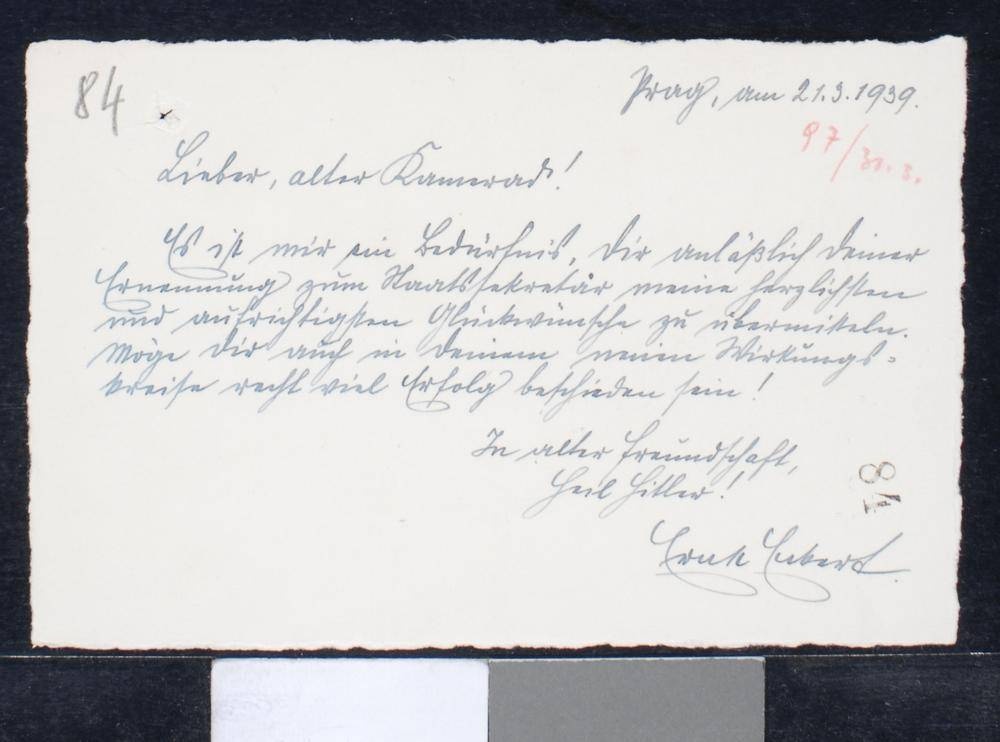 84
Prag, am 21.3.1939.
97/30.3.
Lieber, alter Kamerad!
Es ist mir ein Bedürfnis, Dir anläßlich Deiner
Ernennung zum Staatssekretär meine herzlichsten
und aufrichtigsten Glückwünsche zu übermitteln.
Möge Dir auch in Deinem neuen Wirkungs-
kreise recht viel Erfolg beschieden sein!
In alter Freundschaft,
Heil Hitler!
84
Ernst